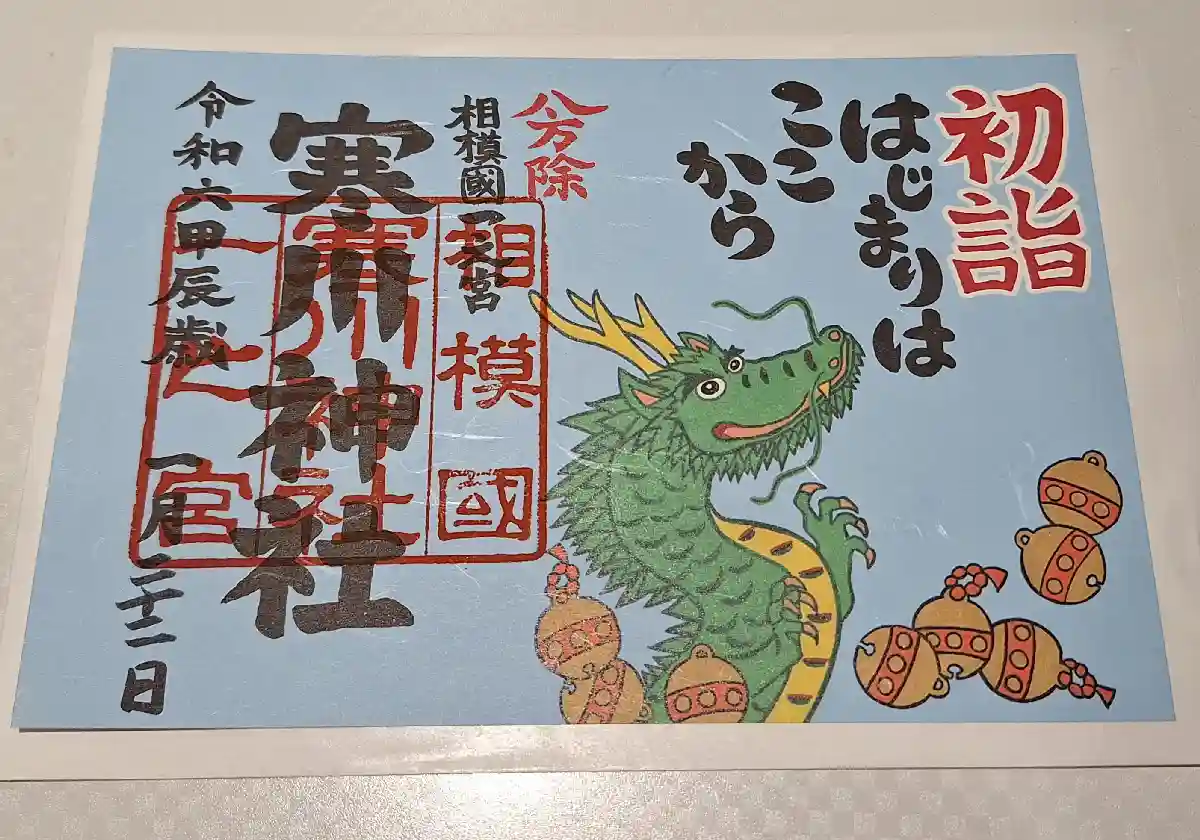 初詣
はじまりは
ここ
から
八方除
相模國一之宮
寒川神社
令和六甲辰歳
一月二十二日
相模國
寒川神社
一之宮